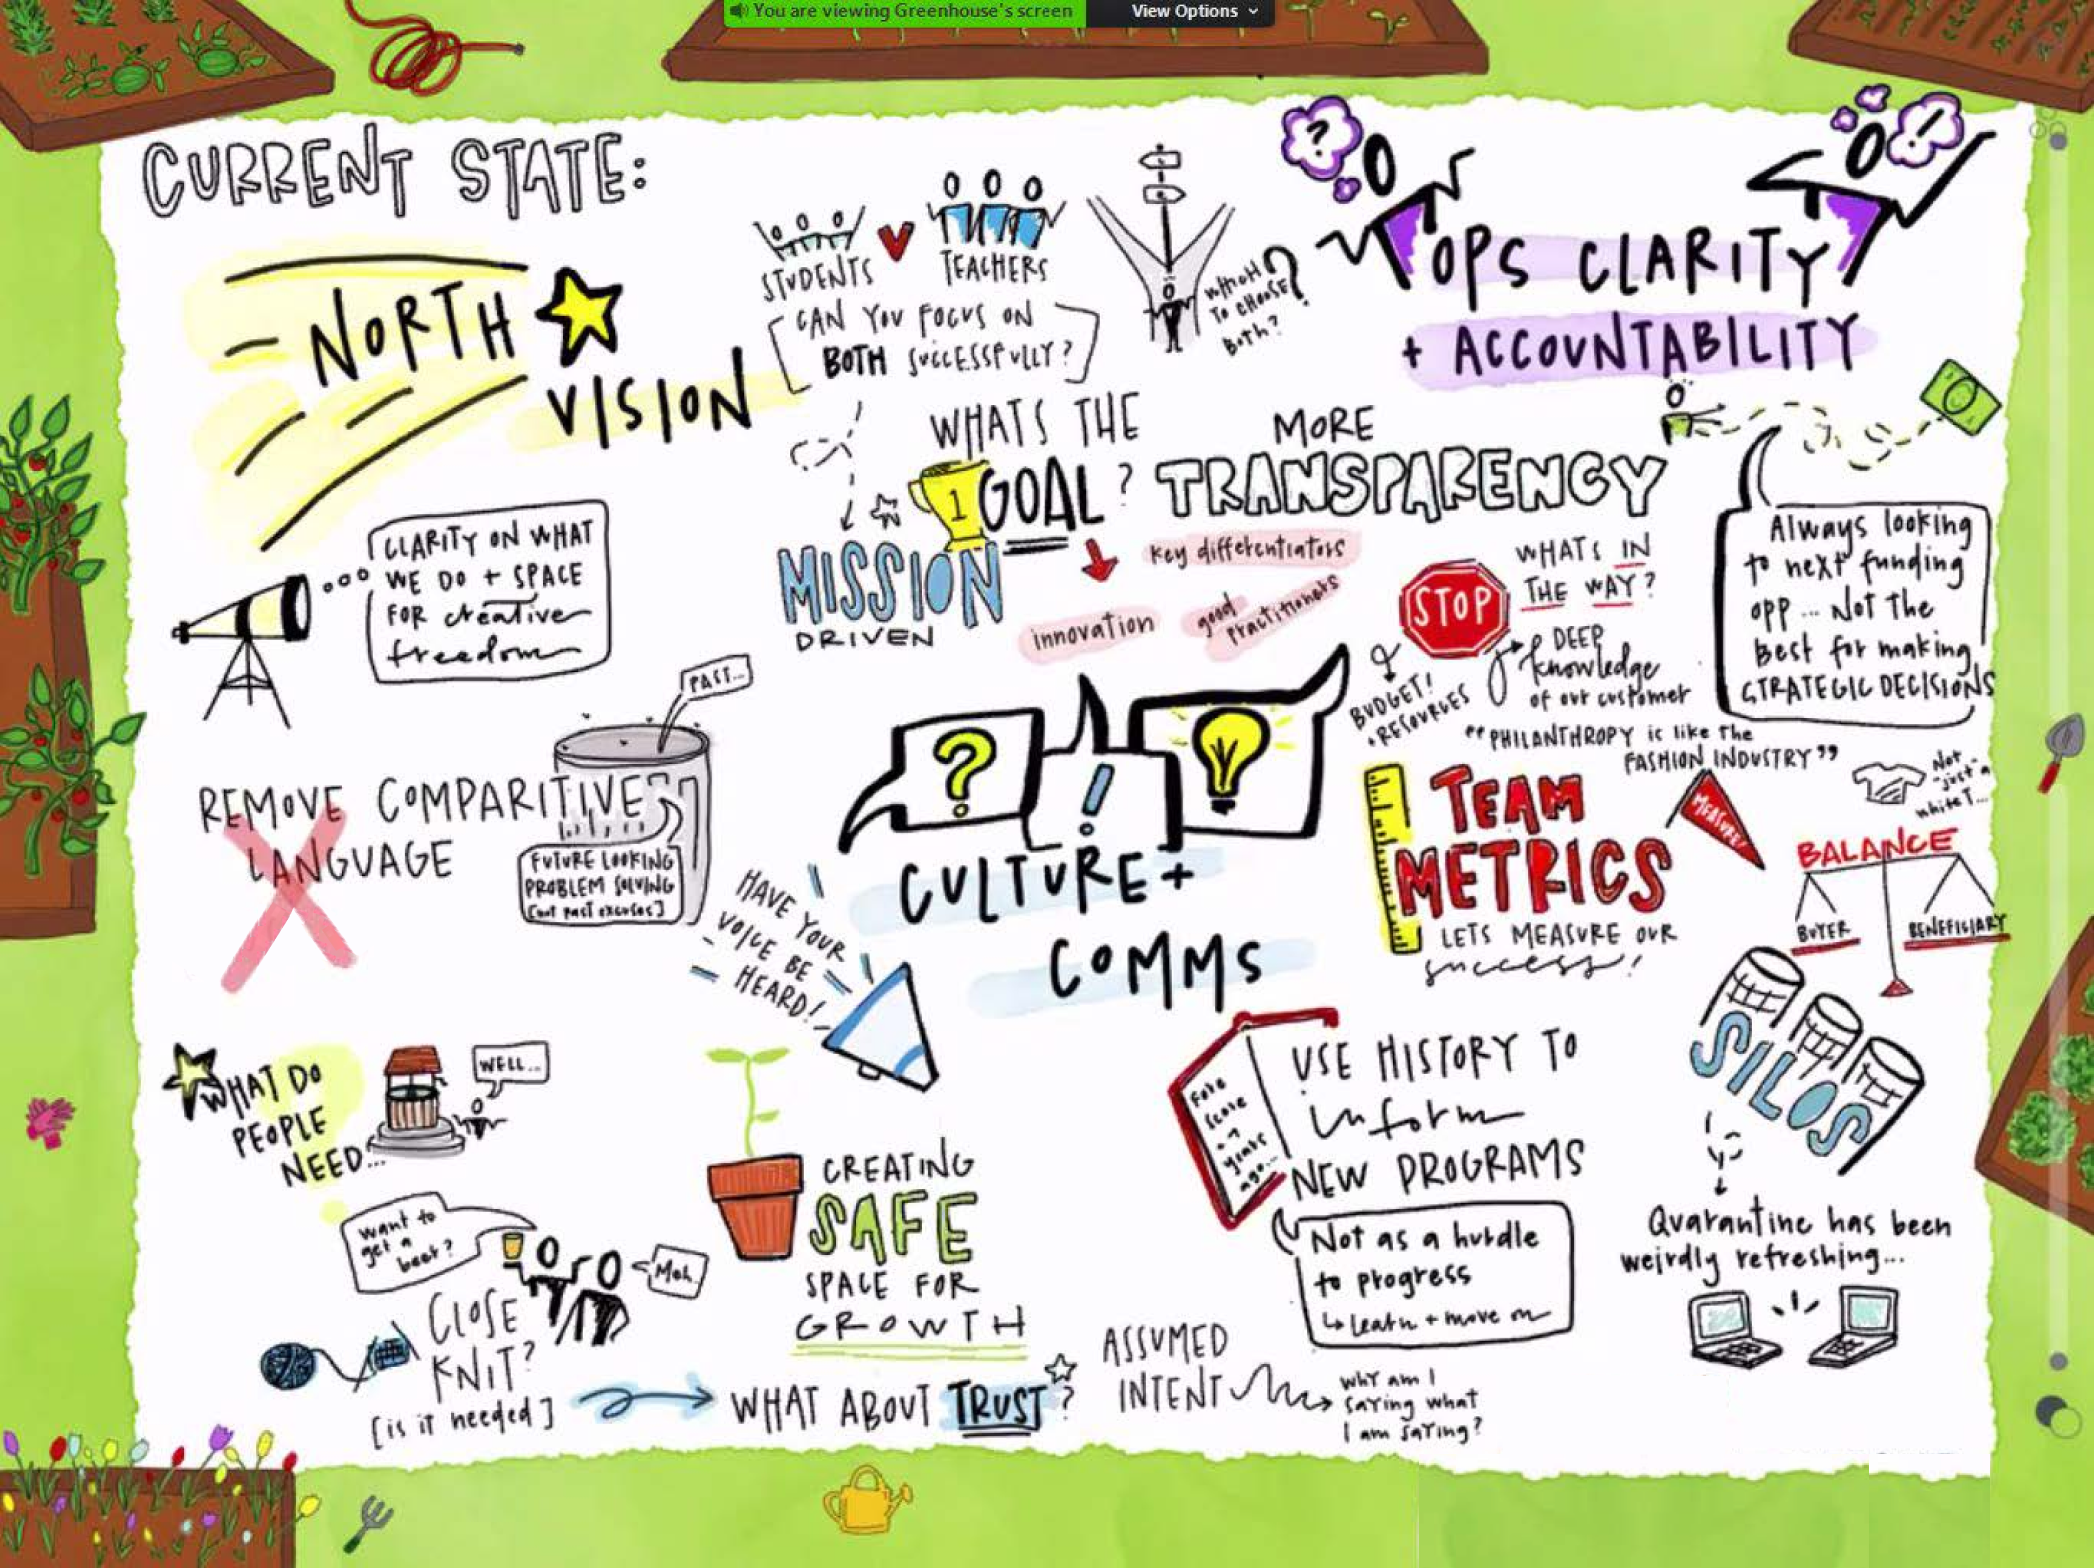 You are viewing Greenhouse's screen
View Options
CURRENT STATE:
NORTH
VISION
STUDENTS
TEACHERS
CAN YOU FOCUS ON
BOTH SUCCESSFULLY?
WHICH
TO CHOOSE
BOTH?
?
?
!
OPS CLARITY
+ ACCOUNTABILITY
WHATS THE
1 GOAL?
MISSION
DRIVEN
key differentiators
innovation
good
practitioners
MORE
TRANSPARENCY
WHATS IN
THE WAY?
STOP
BUDGET!
+ RESOURCES
DEEP
knowledge
of our customer
Always looking
to next funding
opp... Not the
best for making
STRATEGIC DECISIONS
"PHILANTHROPY is like the
FASHION INDUSTRY"
Not
"just" a
white T...
CLARITY ON WHAT
WE DO + SPACE
FOR creative
freedom
PAST...
REMOVE COMPARITIVE
LANGUAGE
FUTURE LOOKING
PROBLEM SOLVING
[not past excuses]
?
!
CULTURE +
COMMS
HAVE YOUR
VOICE BE
HEARD!
TEAM
METRICS
LETS MEASURE OUR
success!
MEASURE!
BALANCE
BUYER
BENEFICIARY
SILOS
Quarantine has been
weirdly refreshing...
WHAT DO
PEOPLE
NEED...
WELL...
want to
get a
beer?
Meh.
CLOSE
KNIT?
[is it needed]
CREATING
SAFE
SPACE FOR
GROWTH
WHAT ABOUT TRUST?
Fore
score
years
ago...
USE HISTORY TO
inform
NEW PROGRAMS
Not as a hurdle
to progress
↳ Learn + move on
ASSUMED
INTENT
WHY am I
saying what
I am saying?